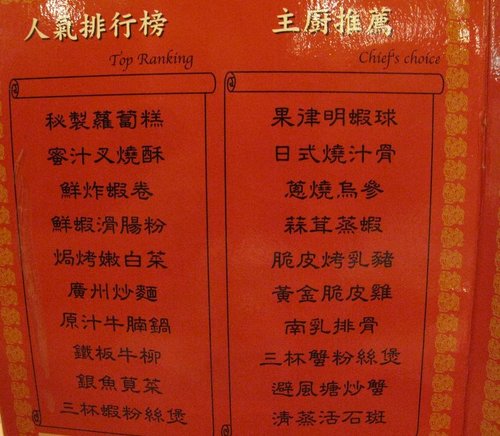 人氣排行榜
Top Ranking
秘製蘿蔔糕
蜜汁叉燒酥
鮮炸蝦卷
鮮蝦滑腸粉
焗烤嫩白菜
廣州炒麵
原汁牛腩鍋
鐵板牛柳
銀魚莧菜
三杯蝦粉絲煲
主廚推薦
Chief's choice
果律明蝦球
日式燒汁骨
蔥燒烏參
蒜茸蒸蝦
脆皮烤乳豬
黃金脆皮雞
南乳排骨
三杯蟹粉絲煲
避風塘炒蟹
清蒸活石斑